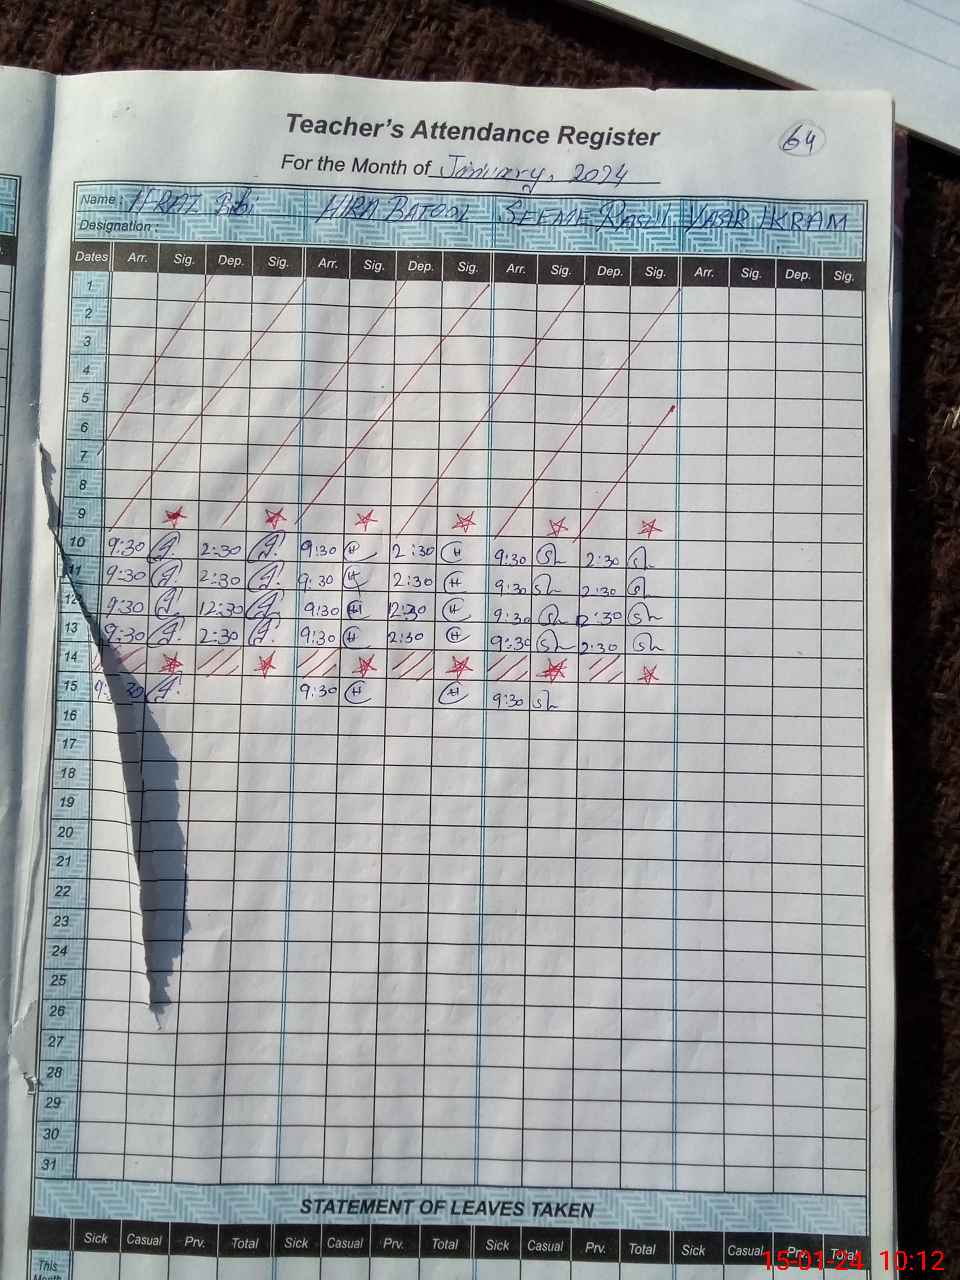 Teacher's Attendance Register
64
For the Month of January, 2024
Name : IFRAT Bibi HIRA BATOOL SEEME RASUL YASR IKRAM
Designation :
Dates Arr. Sig. Dep. Sig. Arr. Sig. Dep. Sig. Arr. Sig. Dep. Sig. Arr. Sig. Dep. Sig.
1
2
3
4
5
6
7
8
9
10 9:30 2:30 9:30 H 2:30 H 9:30 Sh 2:30 Sh
11 9:30 2:30 9:30 H 2:30 H 9:30 Sh 2:30 Sh
12 9:30 12:30 9:30 H 12:30 H 9:30 Sh 12:30 Sh
13 9:30 2:30 9:30 H 2:30 H 9:30 Sh 2:30 Sh
14
15 9:30 9:30 H H 9:30 Sh
16
17
18
19
20
21
22
23
24
25
26
27
28
29
30
31
STATEMENT OF LEAVES TAKEN
Sick Casual Prv. Total Sick Casual Prv. Total Sick Casual Prv. Total Sick Casual Prv. Total
This
Month
15-01-24 10:12